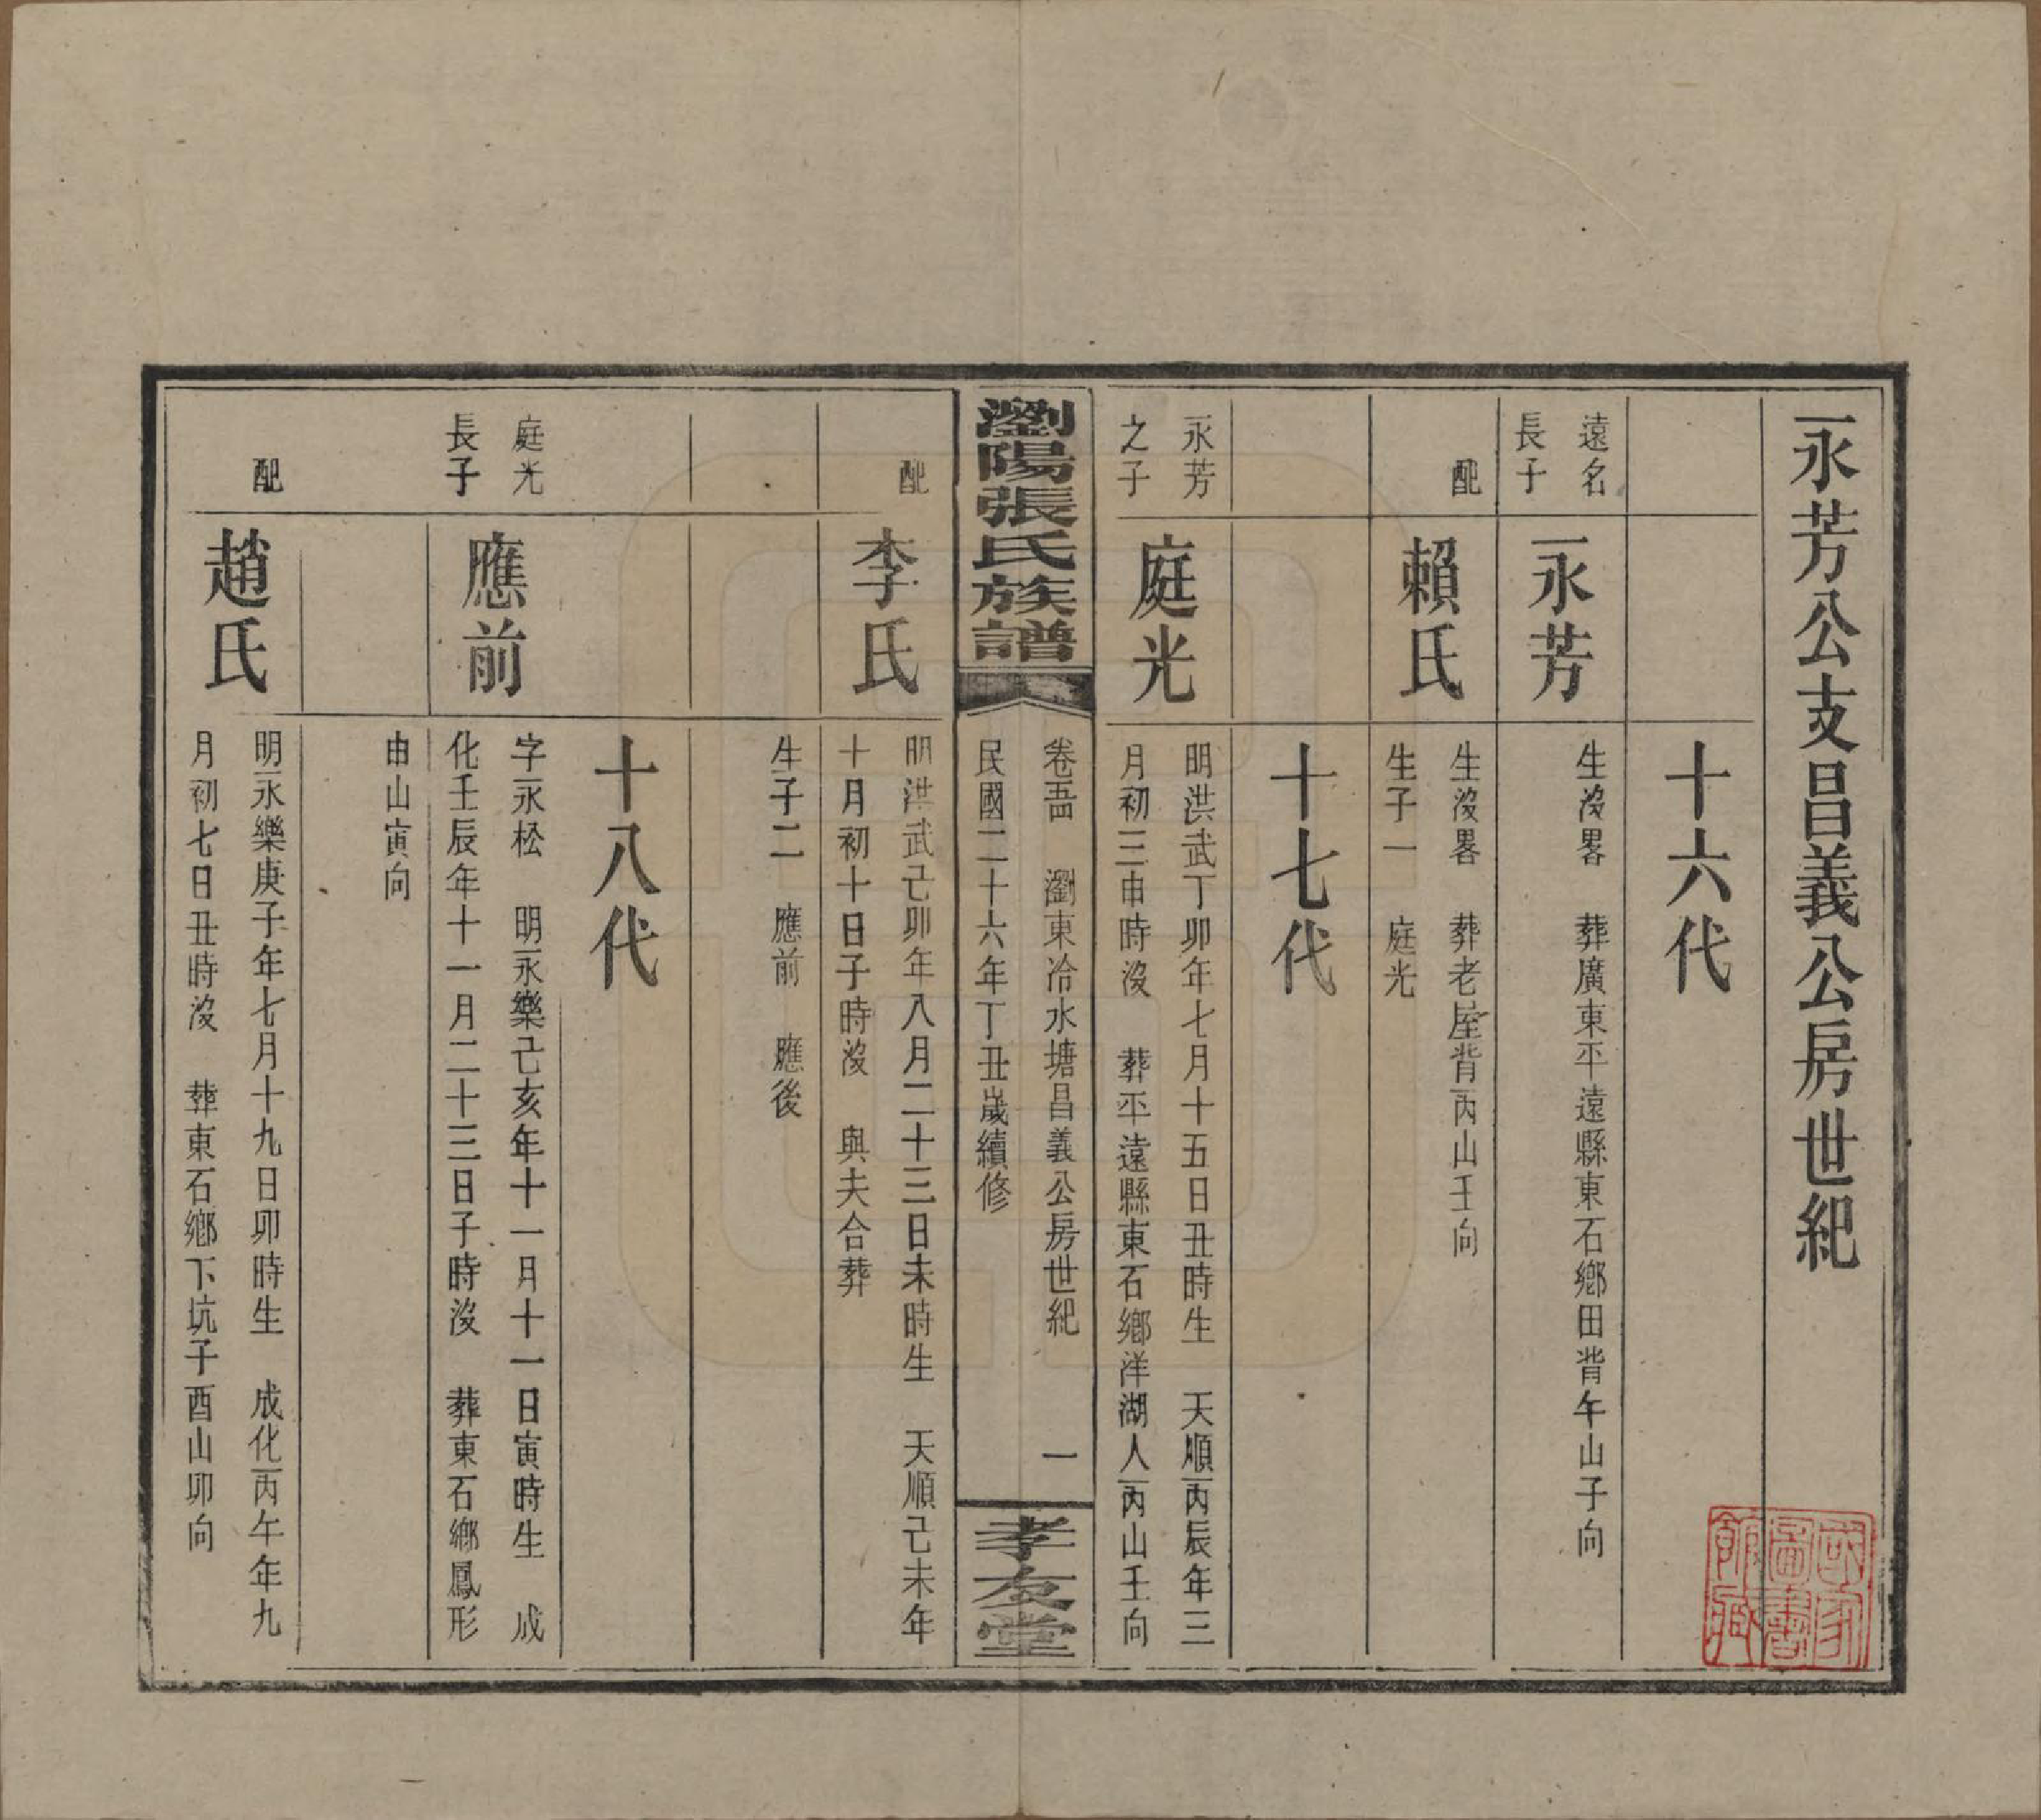 永芳公支昌義公房世紀
十六代
遠名
長子
永芳
生沒畧　葬廣東平遠縣東石鄉田背午山子向
配
賴氏
生沒畧　葬老屋背丙山壬向
生子一　庭光
十七代
永芳
之子
庭光
明洪武丁卯年七月十五日丑時生　天順丙辰年三
月初三申時沒　葬平遠縣東石鄉洋湖人丙山壬向
瀏陽張氏族譜
卷五　瀏東冷水塘昌義公房世紀　一
民國二十六年丁丑歲續修
孝友堂
配
李氏
明洪武己卯年八月二十三日未時生　天順己未年
十月初十日子時沒　與夫合葬
生子二　應前　應後
十八代
庭光
長子
應前
字永松　明永樂己亥年十一月十一日寅時生　成
化壬辰年十一月二十三日子時沒　葬東石鄉鳳形
申山寅向
配
趙氏
明永樂庚子年七月十九日卯時生　成化丙午年九
月初七日丑時沒　葬東石鄉下坑子酉山卯向
國家
圖書
館藏